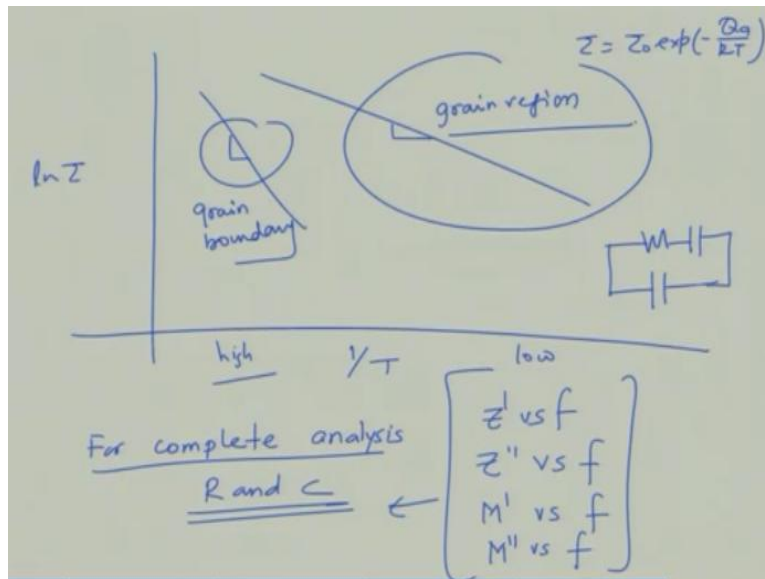 τ = τ₀ exp(-Qa/RT)
grain region
ln τ
grain
boundary
high 1/T low
For complete analysis
R and C ←
Z' vs f
Z'' vs f
M' vs f
M'' vs f